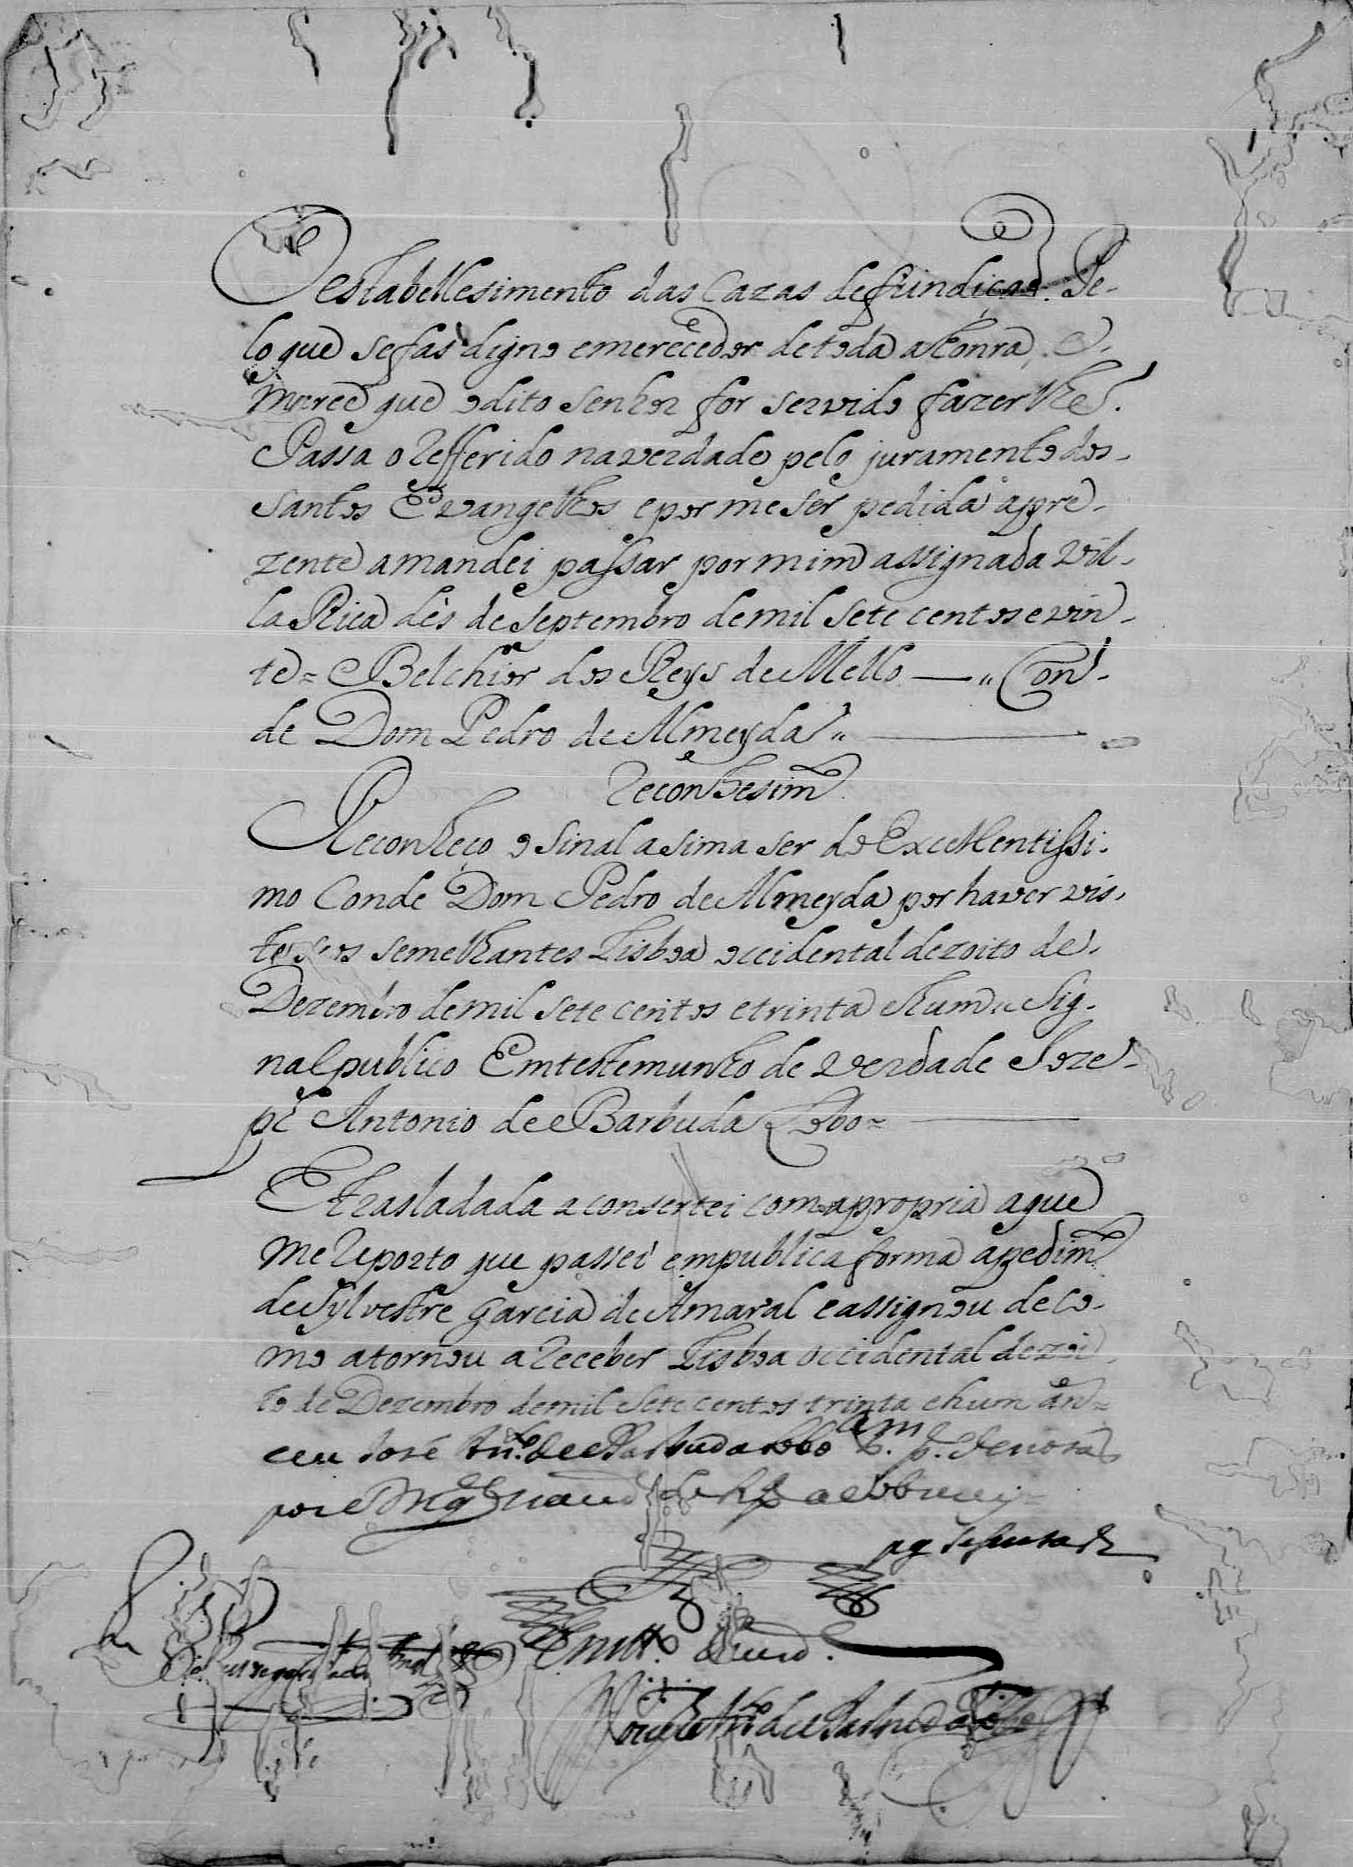 O establellesimento das Cazas de fundição. Pe-
lo que se fás digno e merecedor de toda a honra, e
merce que o dito Senhor for servido fazerlhe.
Passa o Refferido na verdade pelo juramento dos
Santos Evangelhos e por me ser pedida a pre-
zente a mandei passar por mim assignada Vil-
la Rica dés de Septembro de mil sete centos e vin-
te = Belchior dos Reys de Mello —" Con-
de Dom Pedro de Almeyda"
Reconhesimto
Reconheço o sinal asima ser do Excellentissi-
mo Conde Dom Pedro de Almeyda por haver vis-
to seos semelhantes Lisboa occidental dezoito de
Dezembro de mil sete centos e trinta e hum" Sig-
nal publico Em testemunho de Verdade Joze
ph Antonio de Barbuda Lobo =
E trasladada a consertei com a propria a que
me Reporto que passei em publica forma a pedimto
de Sylvestre Garcia de Amaral e assignou de co-
mo a tornou a Receber Lisboa occidental dezoi
to de Dezembro de mil sete centos trinta e hum an=
e eu José Anto de Barbuda Lobo
por
Em tto de verd.
Anto de Barbuda Lobo